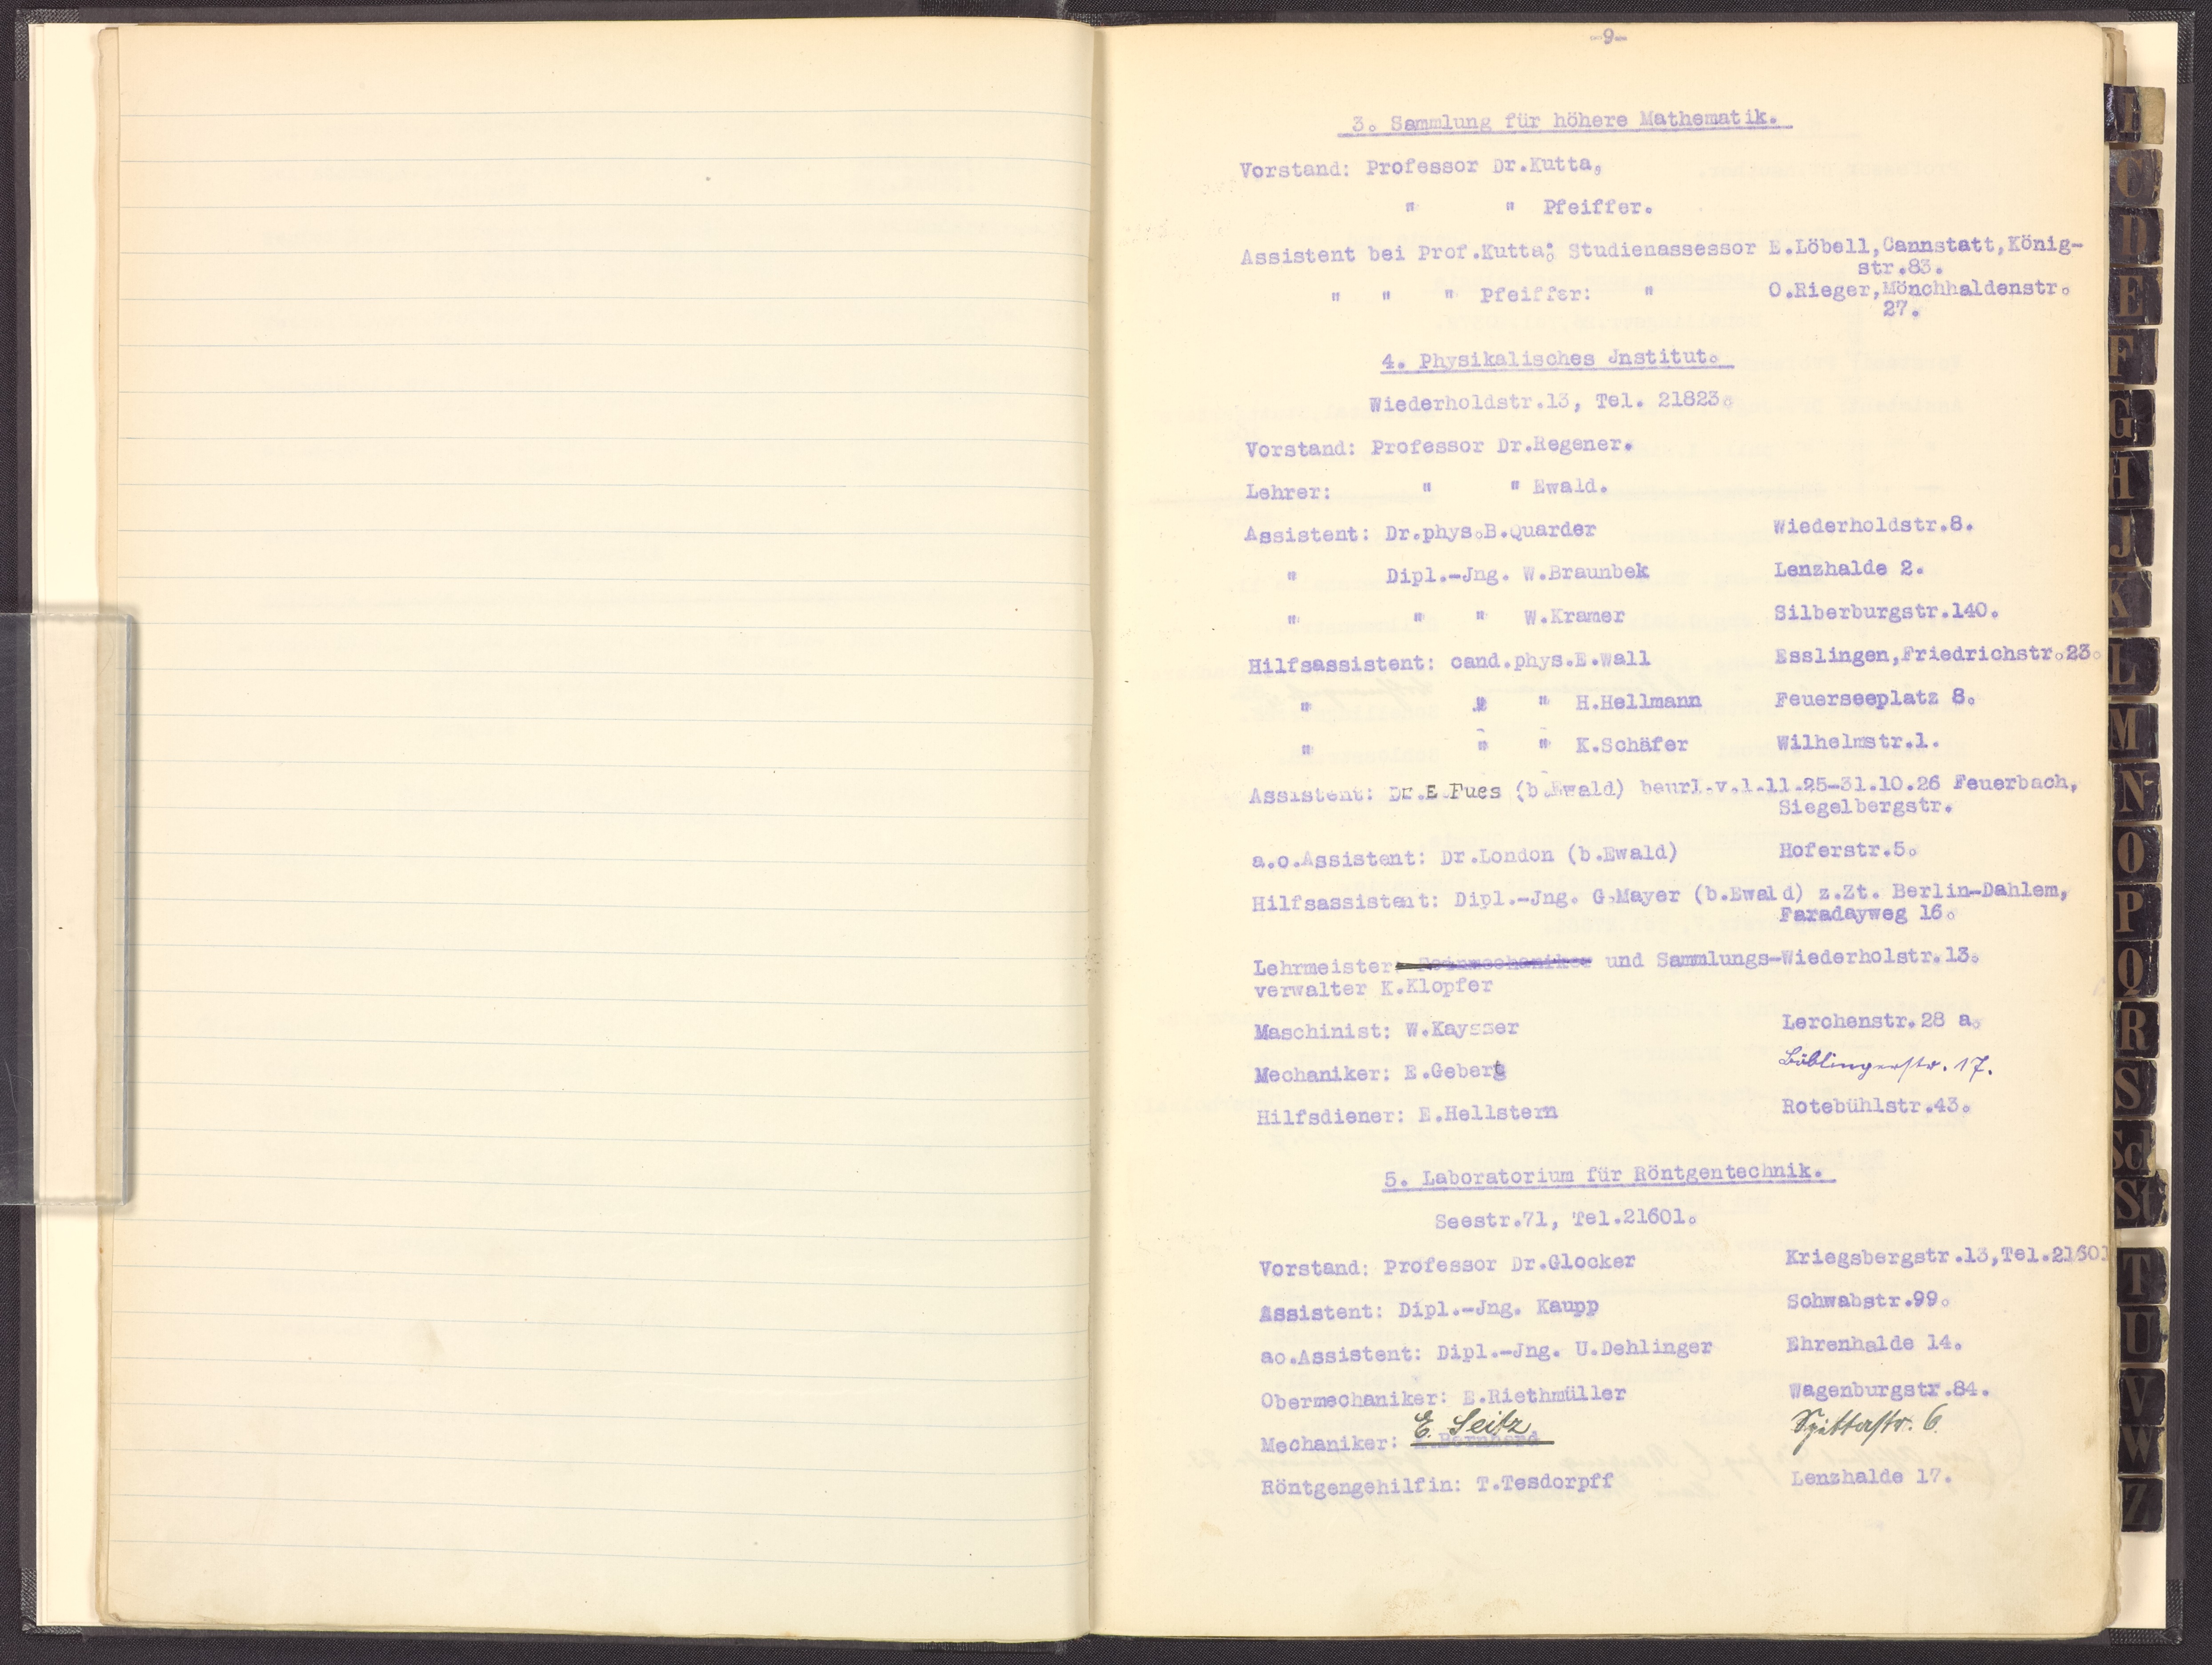 -9-
3. Sammlung für höhere Mathematik.
Vorstand: Professor Dr.Kutta,
" " Pfeiffer.
Assistent bei Prof.Kutta: Studienassessor E.Löbell,Cannstatt,König-
str.83.
" " " Pfeiffer: " O.Rieger,Mönchhaldenstr.
27.
4. Physikalisches Jnstitut.
Wiederholdstr.13, Tel. 21823.
Vorstand: Professor Dr.Regener.
Lehrer: " " Ewald.
Assistent: Dr.phys.B.Quarder Wiederholdstr.8.
" Dipl.-Jng. W.Braunbek Lenzhalde 2.
" " " W.Kramer Silberburgstr.140.
Hilfsassistent: cand.phys.E.Wall Esslingen,Friedrichstr.23.
" " " H.Hellmann Feuerseeplatz 8.
" " " K.Schäfer Wilhelmstr.1.
Assistent: Dr.E.Fues (b.Ewald) beurl.v.1.11.25-31.10.26 Feuerbach,
Siegelbergstr.
a.o.Assistent: Dr.London (b.Ewald) Hoferstr.5.
Hilfsassistent: Dipl.-Jng. G.Mayer (b.Ewald) z.Zt. Berlin-Dahlem,
Faradayweg 16.
Lehrmeister Feinmechaniker und Sammlungs-Wiederholstr.13.
verwalter K.Klopfer
Maschinist: W.Kaysser Lerchenstr.28 a.
Mechaniker: E.Gebert Böblingerstr. 17.
Hilfsdiener: E.Hellstern Rotebühlstr.43.
5. Laboratorium für Röntgentechnik.
Seestr.71, Tel.21601.
Vorstand: Professor Dr.Glocker Kriegsbergstr.13,Tel.21601
Assistent: Dipl.-Jng. Kaupp Schwabstr.99.
ao.Assistent: Dipl.-Jng. U.Dehlinger Ehrenhalde 14.
Obermechaniker: E.Riethmüller Wagenburgstr.84.
E. Seitz
Mechaniker: Bernhard Spittastr. 6.
Röntgengehilfin: T.Tesdorpff Lenzhalde 17.
C
D
E
F
G
H
J
K
L
M
N
O
P
Q
R
S
Sch
St
T
U
V
W
Z